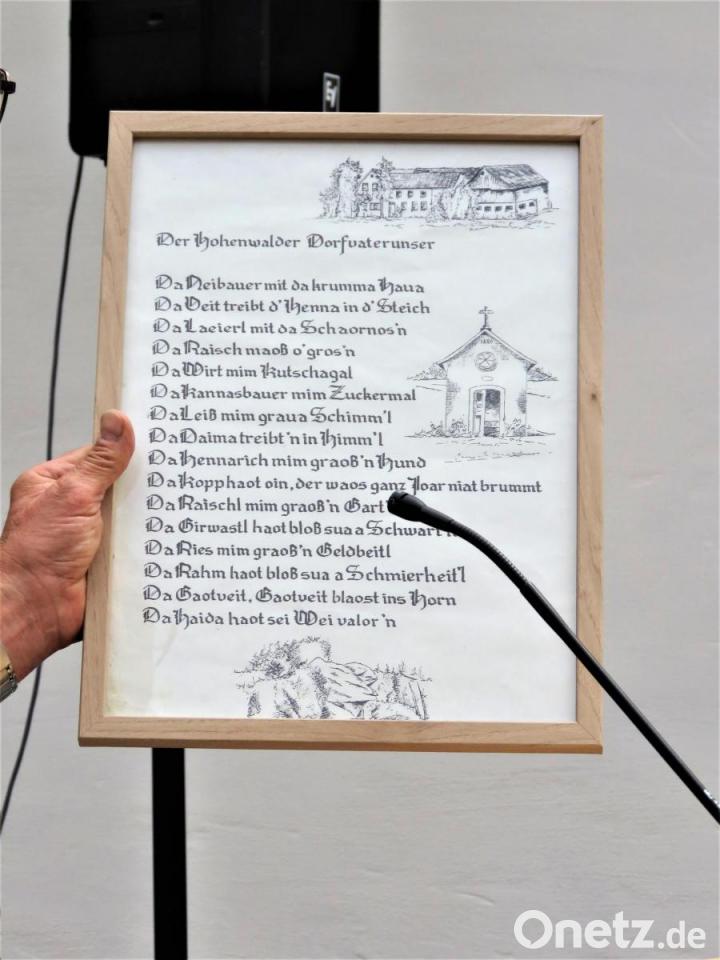 Der Hohenwalder Dorfvaterunser
Da Neibauer mit da krumma Haua
Da Veit treibt d'Henna in d'Steich
Da Laeierl mit da Schaornos'n
Da Raisch maoß o'gros'n
Da Wirt mim Kutschagal
Da Kannasbauer mim Zuckermal
Da Leiß mim graua Schimm'l
Da Daima treibt'n in Himm'l
Da Hennarich mim graoß'n Hund
Da Kopp haot oin, der waos ganz Joar niat brummt
Da Raischl mim graoß'n
Da Girwastl haot bloß sua a
Da Ries mim graoß'n Geldbeitl
Da Rahm haot bloß sua a Schmierheit'l
Da Gaotveit, Gaotveit blaost ins Horn
Da Haida haot sei Wei valor'n
Onetz.de